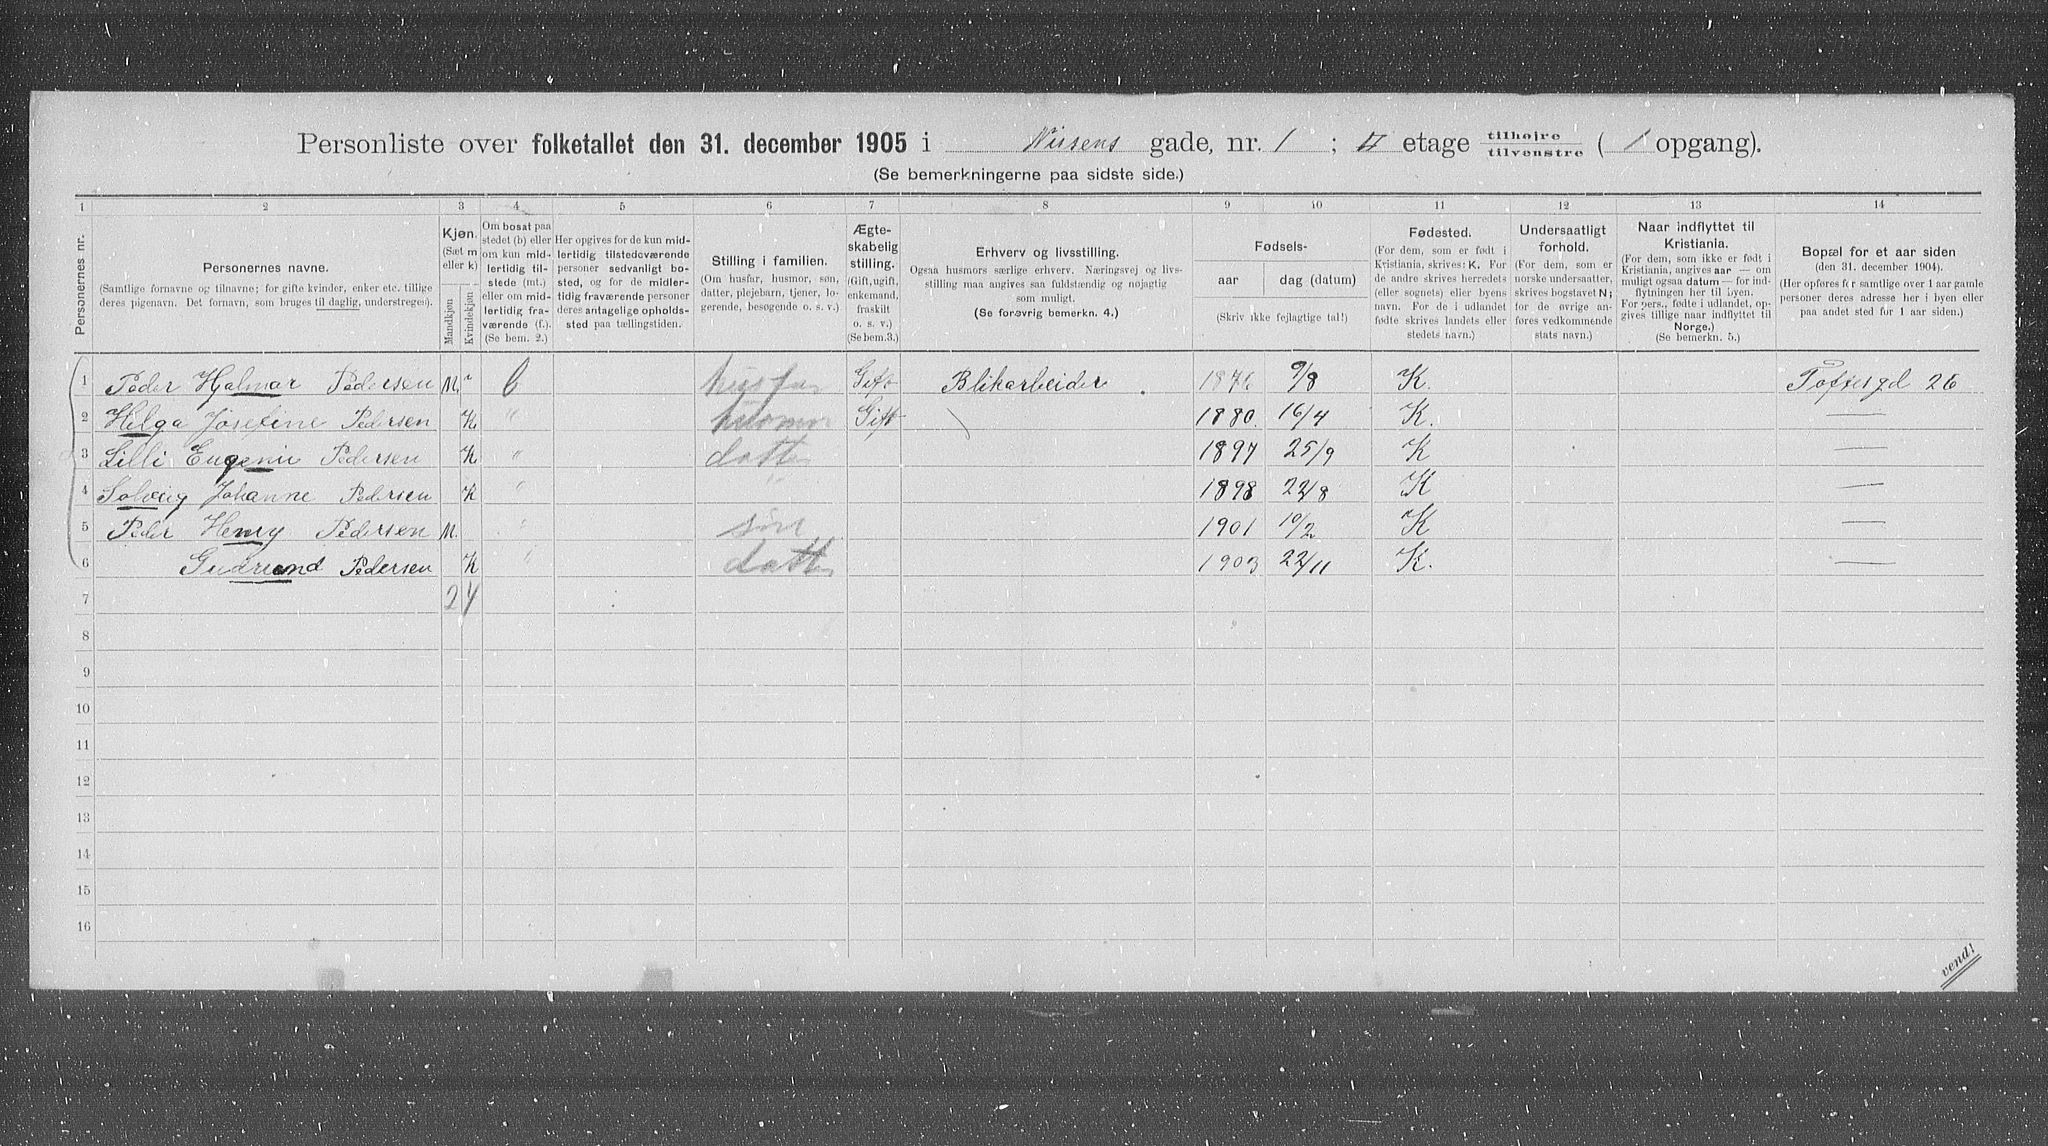 Personliste over folketallet den 31. december 1905 i Nilsens gade, nr. 1 ; II etage tilhøjre/tilvenstre ( 1 opgang).
(Se bemerkningerne paa sidste side.)
1 2 3 4 5 6 7 8 9 10 11 12 13 14
Personernes nr.
Personernes navne.
(Samtlige fornavne og tilnavne; for gifte kvinder, enker etc. tillige
deres pigenavn. Det fornavn, som bruges til daglig, understreges).
Kjøn.
(Sæt m
eller k)
Mandkjøn
Kvindekjøn
Om bosat paa
stedet (b) eller
om kun mid-
lertidig til-
stede (mt.)
eller om mid-
lertidig fra-
værende (f.).
(Se bem. 2.)
Her opgives for de kun mid-
lertidig tilstedeværende
personer sedvanligt bo-
sted, og for de midler-
tidig fraværende personer
deres antagelige opholds-
sted paa tællingstiden.
Stilling i familien.
(Om husfar, husmor, søn,
datter, plejebarn, tjener, lo-
gerende, besøgende o. s. v.)
Ægte-
skabelig
stilling.
(Gift, ugift,
enkemand,
fraskilt
o. s. v.)
(Se bem.3.)
Erhverv og livsstilling.
Ogsaa husmors særlige erhverv. Næringsvej og livs-
stilling maa angives saa fuldstændig og nøjagtig
som muligt.
(Se forøvrig bemerkn. 4.)
Fødsels-
aar dag (datum)
(Skriv ikke fejlagtige tal!)
Fødested.
(For dem, som er født i
Kristiania, skrives: K. For
de andre skrives herredets
(eller sognets) eller byens
navn. For de i udlandet
fødte skrives landets eller
stedets navn.)
Undersaatligt
forhold.
(For dem, som er
norske undersaatter,
skrives bogstavet N;
for de øvrige an-
føres vedkommende
stats navn.)
Naar indflyttet til
Kristiania.
(For dem, som ikke er født i
Kristiania, angives aar — om
muligt ogsaa datum — for ind-
flytningen her til byen.
For pers., fødte i udlandet, op-
gives tillige naar indflyttet til
Norge.)
(Se bemerkn. 5.)
Bopæl for et aar siden
(den 31. december 1904).
(Her opføres for samtlige over 1 aar gamle
personer deres adresse her i byen eller
paa andet sted for 1 aar siden.)
1 Peder Hjalmar Pedersen M. b husfar Gift Blikarbeider. 1876 9/8 K. Toftesgd 26
2 Helga Josefine Pedersen K " husmor Gift 1880. 16/4 K. —
3 Lilli Eugenie Pedersen K " datter 1897 25/9 K —
4 Solveig Johanne Pedersen K " " 1898 22/8 K —
5 Peder Henry Pedersen M. " søn 1901 10/2 K —
6 Gudrund Pedersen K " datter 1903 22/11 K. —
7 2 4
8
9
10
11
12
13
14
15
16
vend!